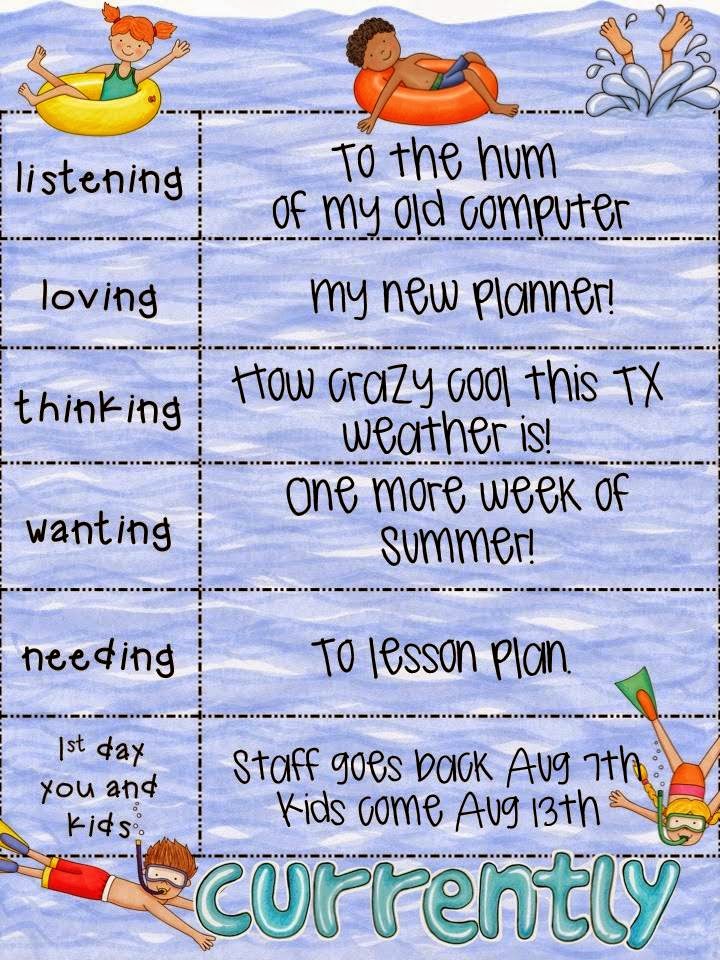 listening
To the hum
of my old computer
loving
my new planner!
thinking
How crazy cool this TX
weather is!
wanting
One more week of
summer!
needing
To lesson plan.
1st day
you and
kids
Staff goes back Aug 7th
Kids come Aug 13th
currently